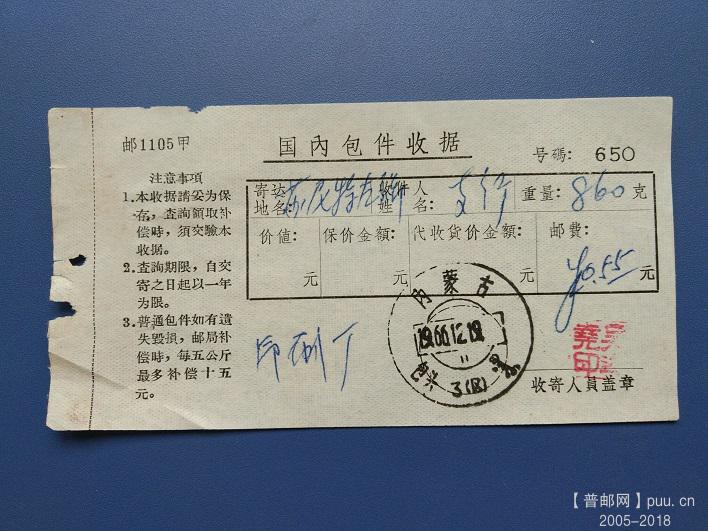 邮1105甲
国內包件收据
号碼: 650
注意事項
1.本收据請妥为保
存，查詢領取补
偿時，须交驗本
收据。
2.查詢期限，自交
寄之日起以一年
为限。
3.普通包件如有遺
失毀損，邮局补
偿時，每五公斤
最多补偿十五
元。
寄达地名: 苏尼特左旗
收件人姓名: 支行
重量: 860克
价值: 元
保价金额: 元
代收货价金额: 元
邮费: ¥0.55元
印刷厂
內蒙古
1966.12.19
11
包头 3(支)
收寄人員盖章
【普邮网】puu.cn
2005-2018